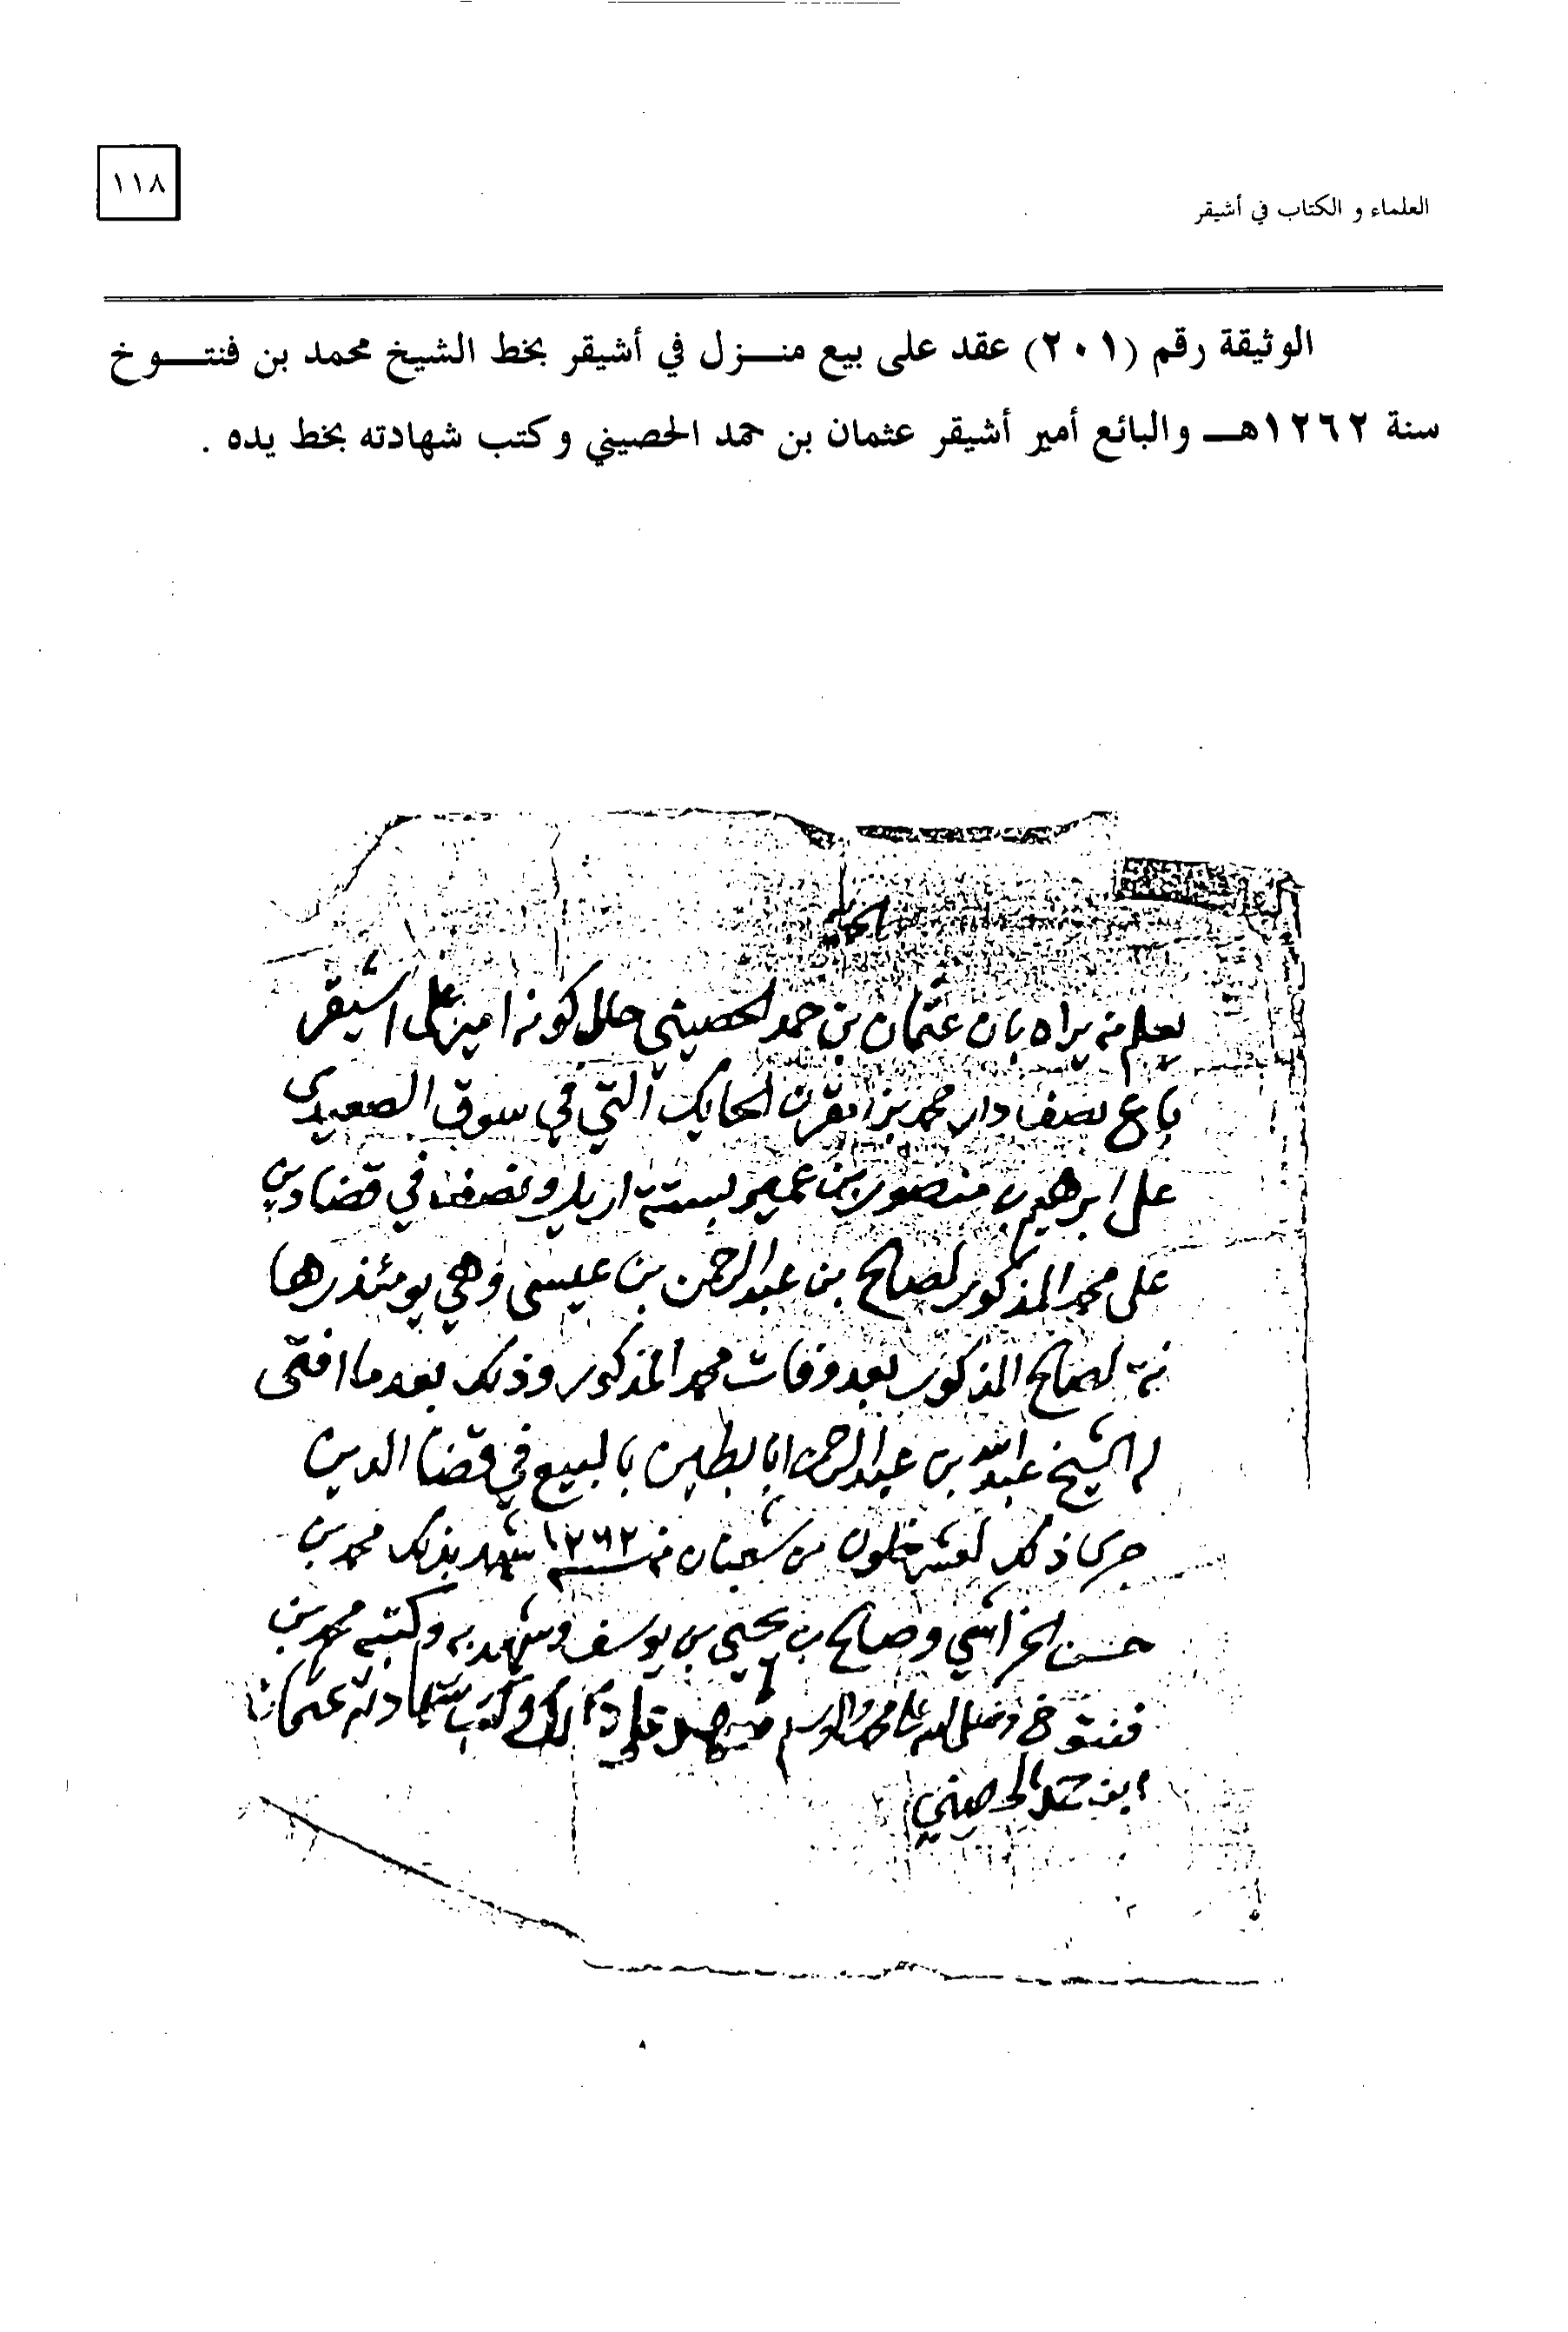 ١١٨
العلماء و الكتاب في أشيقر
الوثيقة رقم (٢٠١) عقد على بيع منـــزل في أشيقر بخط الشيخ محمد بن فنتـــوخ
سنة ١٢٦٢هـــ والبائع أمير أشيقر عثمان بن حمد الحصيني وكتب شهادته بخط يده .
يعلم من يراه بان عثمان بن حمد الحصيني حال كونه امير على اشيقر
باع نصف دار محمد بن مقرن الحايك التي في سوق الصعيدي
على ابرهيم بن منصور بن عمير بستة اريل ونصف في قضا دين
على محمد المذكور لصالح بن عبدالرحمن بن عيسى وهي يومئذ رها
نه لصالح المذكور بعد وفات محمد المذكور وذلك بعد ما افتى
له الشيخ عبدالله بن عبدالرحمن ابا بطين بالبيع في قضا الدين
جرى ذلك لعشر خلون من شعبان سنة ١٢٦٢ شهد بذلك محمد بن
حسن الخراشي وصالح بن يحيى بن يوسف وشهد به وكتبه محمد بن
فنتوخ وصلى الله على محمد واله وسلم شهد على ذلك وكتب شهادته عثمان
ابن حمد الحصيني